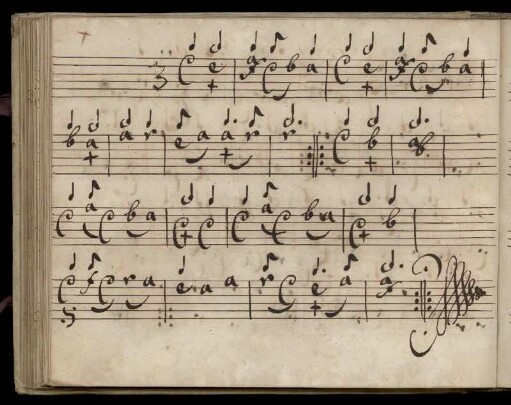 3 C e a f C b a C e a f C b a
b a a r e a a r r C b a b
C a C b a C C C a C b a C b
C f C r a e a a r C e a a
5